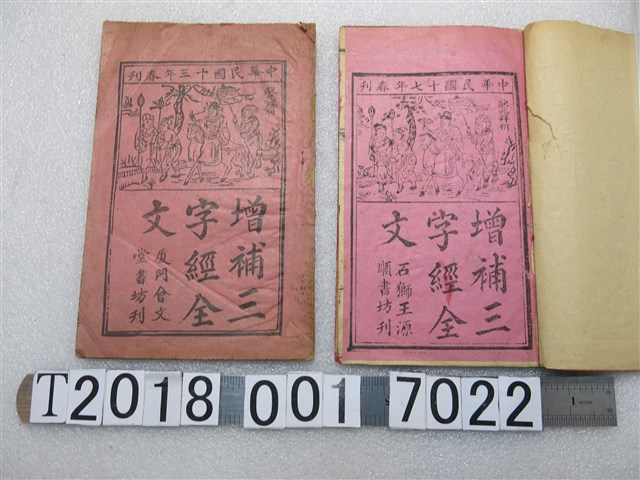 中華民國十三年春刊
增補三
字經全
文
廈門會文
堂書坊刊
中華民國十七年春刊
增補三
字經全
文
石獅王源
順書坊刊
T2018 001 7022
1